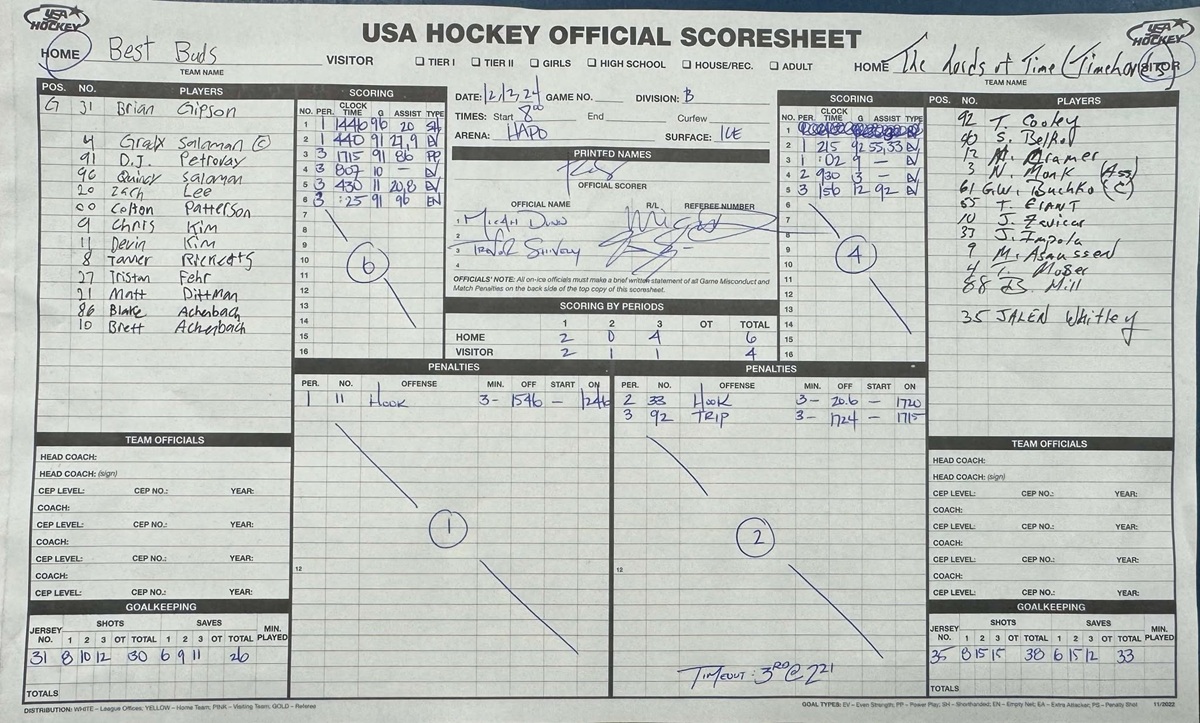 USA HOCKEY
USA HOCKEY OFFICIAL SCORESHEET
USA HOCKEY
HOME Best Buds VISITOR
TEAM NAME
☐ TIER I ☐ TIER II ☐ GIRLS ☐ HIGH SCHOOL ☐ HOUSE/REC. ☐ ADULT
HOME The Lords of Time VISITOR
TEAM NAME
POS. NO. PLAYERS
G 31 Brian Gipson
4 Grady Salaman (C)
91 D.J. Petrovay
96 Quincy Salaman
20 Zach Lee
00 Colton Patterson
9 Chris Kim
11 Devin Kim
8 Tanner Ricketts
27 Tristan Fehr
21 Matt Dittman
86 Blake Achenbach
10 Brett Achenbach
SCORING
NO. PER. CLOCK TIME G ASSIST TYPE
1 1 1446 96 20 SH
2 1 440 91 27,9 EV
3 3 1715 91 86 PP
4 3 807 10 — EV
5 3 430 11 20,8 EV
6 3 :25 91 96 EN
7
8
9
10
11
12
13
14
15
16
6
DATE: 12/2/24 GAME NO. DIVISION: B
TIMES: Start 8:00 End Curfew
ARENA: HAPO SURFACE: ICE
PRINTED NAMES
OFFICIAL SCORER
OFFICIAL NAME R/L REFEREE NUMBER
1 Micah Dunn
2
3 Trevor Shively
4
OFFICIALS' NOTE: All on-ice officials must make a brief written statement of all Game Misconduct and
Match Penalties on the back side of the top copy of this scoresheet.
SCORING BY PERIODS
1 2 3 OT TOTAL
HOME 2 0 4 6
VISITOR 2 1 1 4
SCORING
NO. PER. CLOCK TIME G ASSIST TYPE
1
2 1 215 92 55,33 EV
3 1 :02 9 — EV
4 2 930 3 — EV
5 3 156 12 92 EV
6
7
8
9
10
11
12
13
14
15
16
4
POS. NO. PLAYERS
92 T. Cooley
90 S. Belkov
12 M. Cramer
3 N. Monk (Ass)
61 G.W. Buchko (C)
55 T. GIANT
10 J. Zavicar
33 J. Impola
9 M. Asmussen
4 T. Moser
88 B. Mill
35 JALEN Whitley
PENALTIES
PER. NO. OFFENSE MIN. OFF START ON
1 11 HOOK 3- 1546 — 1246
12
1
PENALTIES
PER. NO. OFFENSE MIN. OFF START ON
2 33 HOOK 3- 20.6 — 1720
3 92 TRIP 3- 1724 — 1715
12
2
TIMEOUT: 3RD @ 221
TEAM OFFICIALS
HEAD COACH:
HEAD COACH: (sign)
CEP LEVEL: CEP NO.: YEAR:
COACH:
CEP LEVEL: CEP NO.: YEAR:
COACH:
CEP LEVEL: CEP NO.: YEAR:
COACH:
CEP LEVEL: CEP NO.: YEAR:
GOALKEEPING
JERSEY NO. SHOTS 1 2 3 OT TOTAL SAVES 1 2 3 OT TOTAL MIN. PLAYED
31 8 10 12 30 6 9 11 26
TOTALS
TEAM OFFICIALS
HEAD COACH:
HEAD COACH: (sign)
CEP LEVEL: CEP NO.: YEAR:
COACH:
CEP LEVEL: CEP NO.: YEAR:
COACH:
CEP LEVEL: CEP NO.: YEAR:
COACH:
CEP LEVEL: CEP NO.: YEAR:
GOALKEEPING
JERSEY NO. SHOTS 1 2 3 OT TOTAL SAVES 1 2 3 OT TOTAL MIN. PLAYED
35 8 15 15 38 6 15 12 33
TOTALS
DISTRIBUTION: WHITE – League Offices; YELLOW – Home Team; PINK – Visiting Team, GOLD – Referee
GOAL TYPES: EV – Even Strength; PP – Power Play; SH – Shorthanded; EN – Empty Net; EA – Extra Attacker; PS – Penalty Shot 11/2022